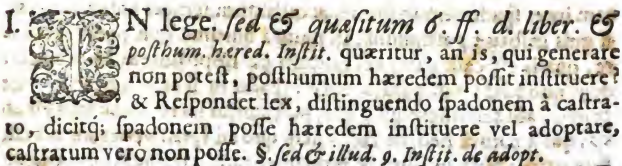 I. IN lege. ſed & quæſitum 6. ff. d. liber. &
poſthum. hæred. Inſtit. quæritur, an is, qui generare
non poteſt, poſthumum hæredem poſſit inſtituere?
& Reſpondet lex, diſtinguendo ſpadonem à caſtra-
to, dicitq́; ſpadonem poſſe hæredem inſtituere vel adoptare,
caſtratum vero non poſſe. §. ſed & illud. 9. Inſtit. de adopt.